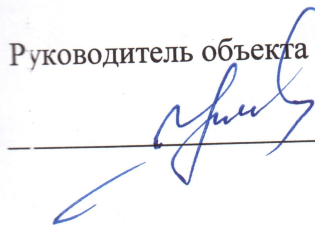 Руководитель объекта